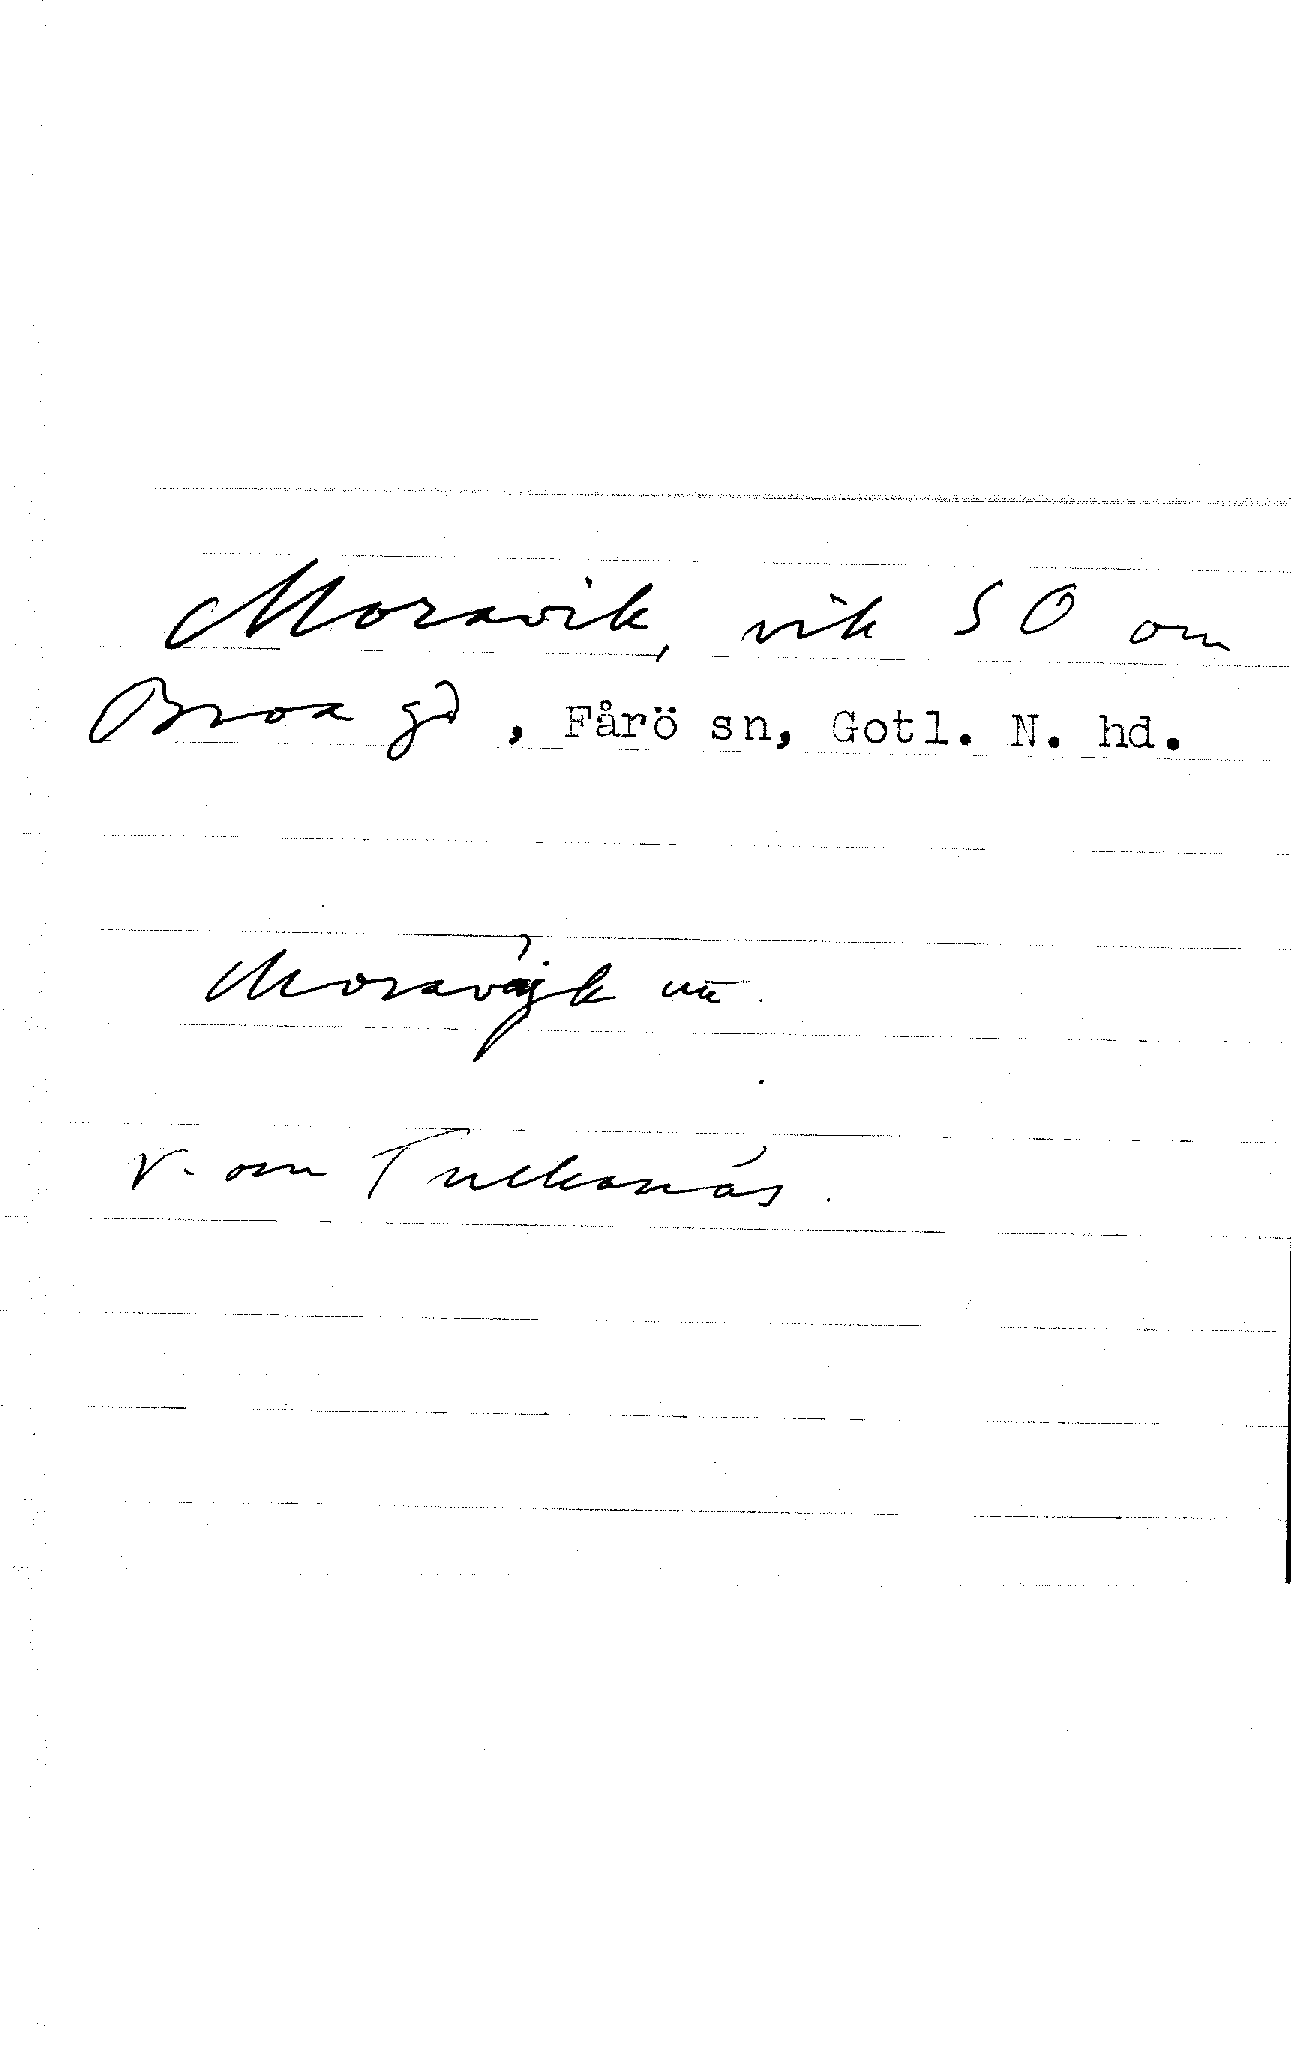 Moravik, vik SO om
Broa gd, Fårö sn, Gotl. N. hd.
Moravájk
v. om